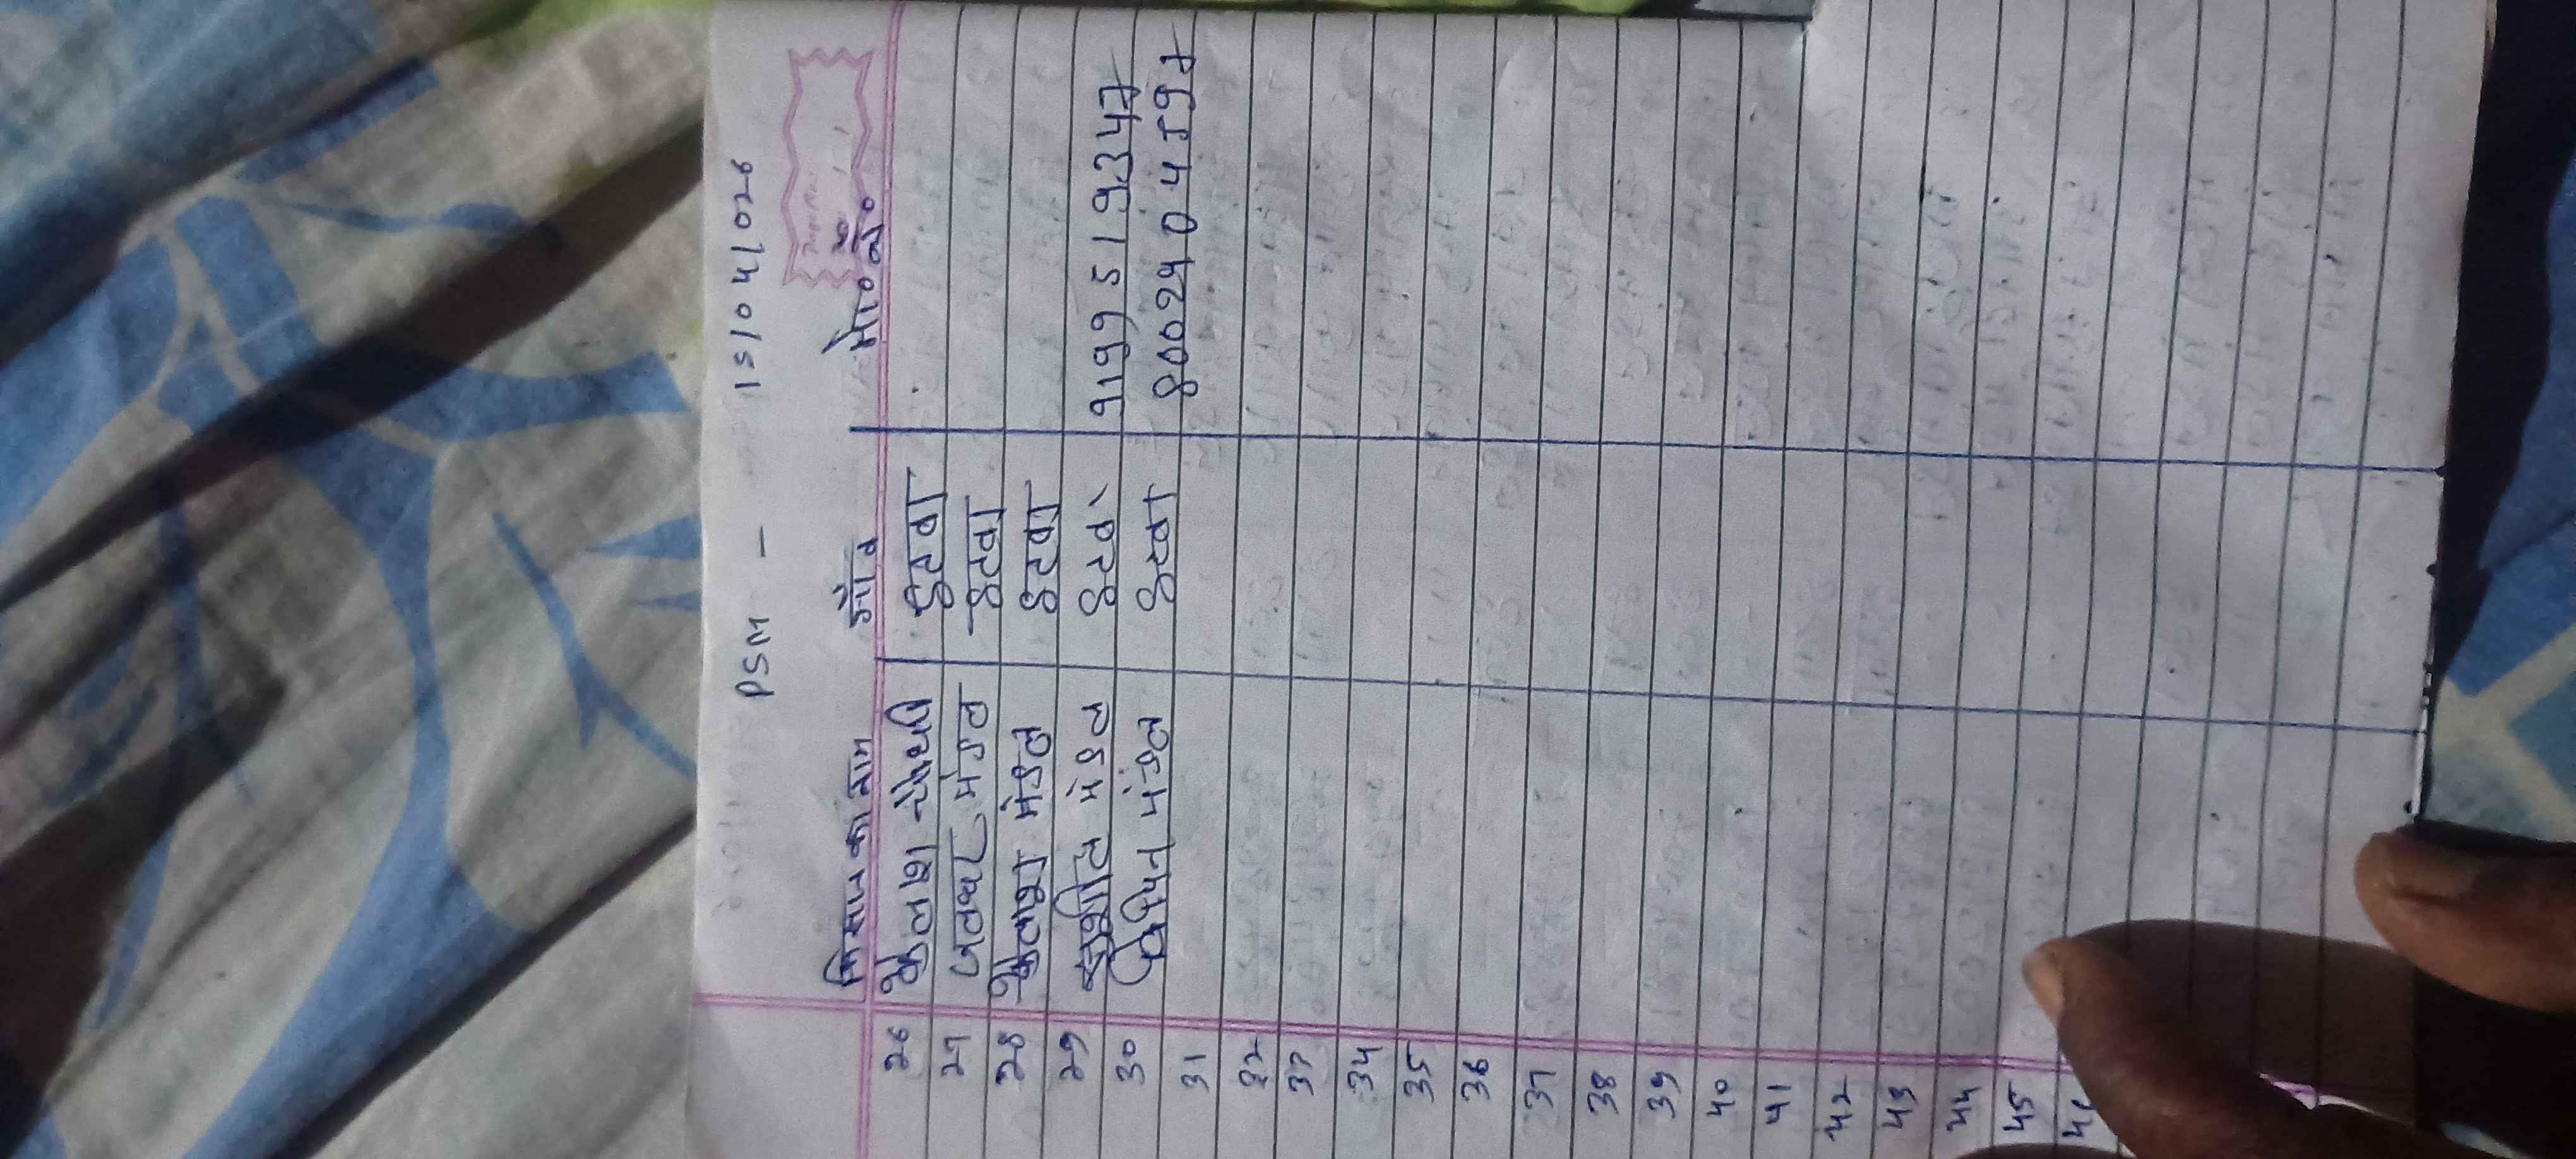 PSM - 15/04/026
किसान का नाम गाँव मो० नं०
26 कैलाश चौधरी इटवा
27 जलधर मंडल इटवा
28 कैलाश मंडल इटवा
29 मंडल इटवा 9199519347
30 विपिन मंडल इटवा
31
32
33
34
35
36
37
38
39
40
41
42
43
44
45